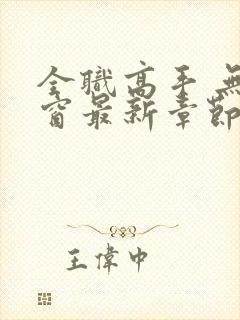 全職高手 無
窗最新章節
王偉中